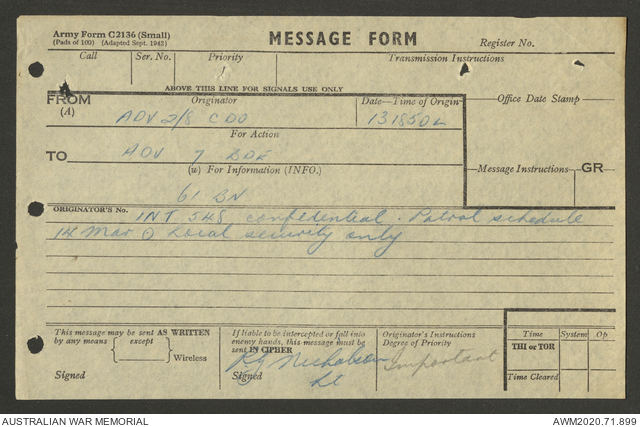 Army Form C2136 (Small)
(Pads of 100) (Adapted Sept. 1942)
MESSAGE FORM
Register No.
Call Ser. No. Priority Transmission Instructions
ABOVE THIS LINE FOR SIGNALS USE ONLY
FROM
(A)
Originator
Date—Time of Origin
Office Date Stamp
ADV 2/8 CDO
131850L
For Action
TO
ADV 7 BDE
(w) For Information (INFO.)
Message Instructions
GR
61 BN
ORIGINATOR'S No.
INT 548 confidential . Patrol schedule
14 Mar ⊙ Local security only
This message may be sent AS WRITTEN
by any means except
Wireless
Signed
If liable to be intercepted or fall into
enemy hands, this message must be
sent IN CIPHER
RG Nicholson
Signed
Lt
Originator's Instructions
Degree of Priority
Important
Time System Op
THI or TOR
Time Cleared
AUSTRALIAN WAR MEMORIAL
AWM2020.71.899